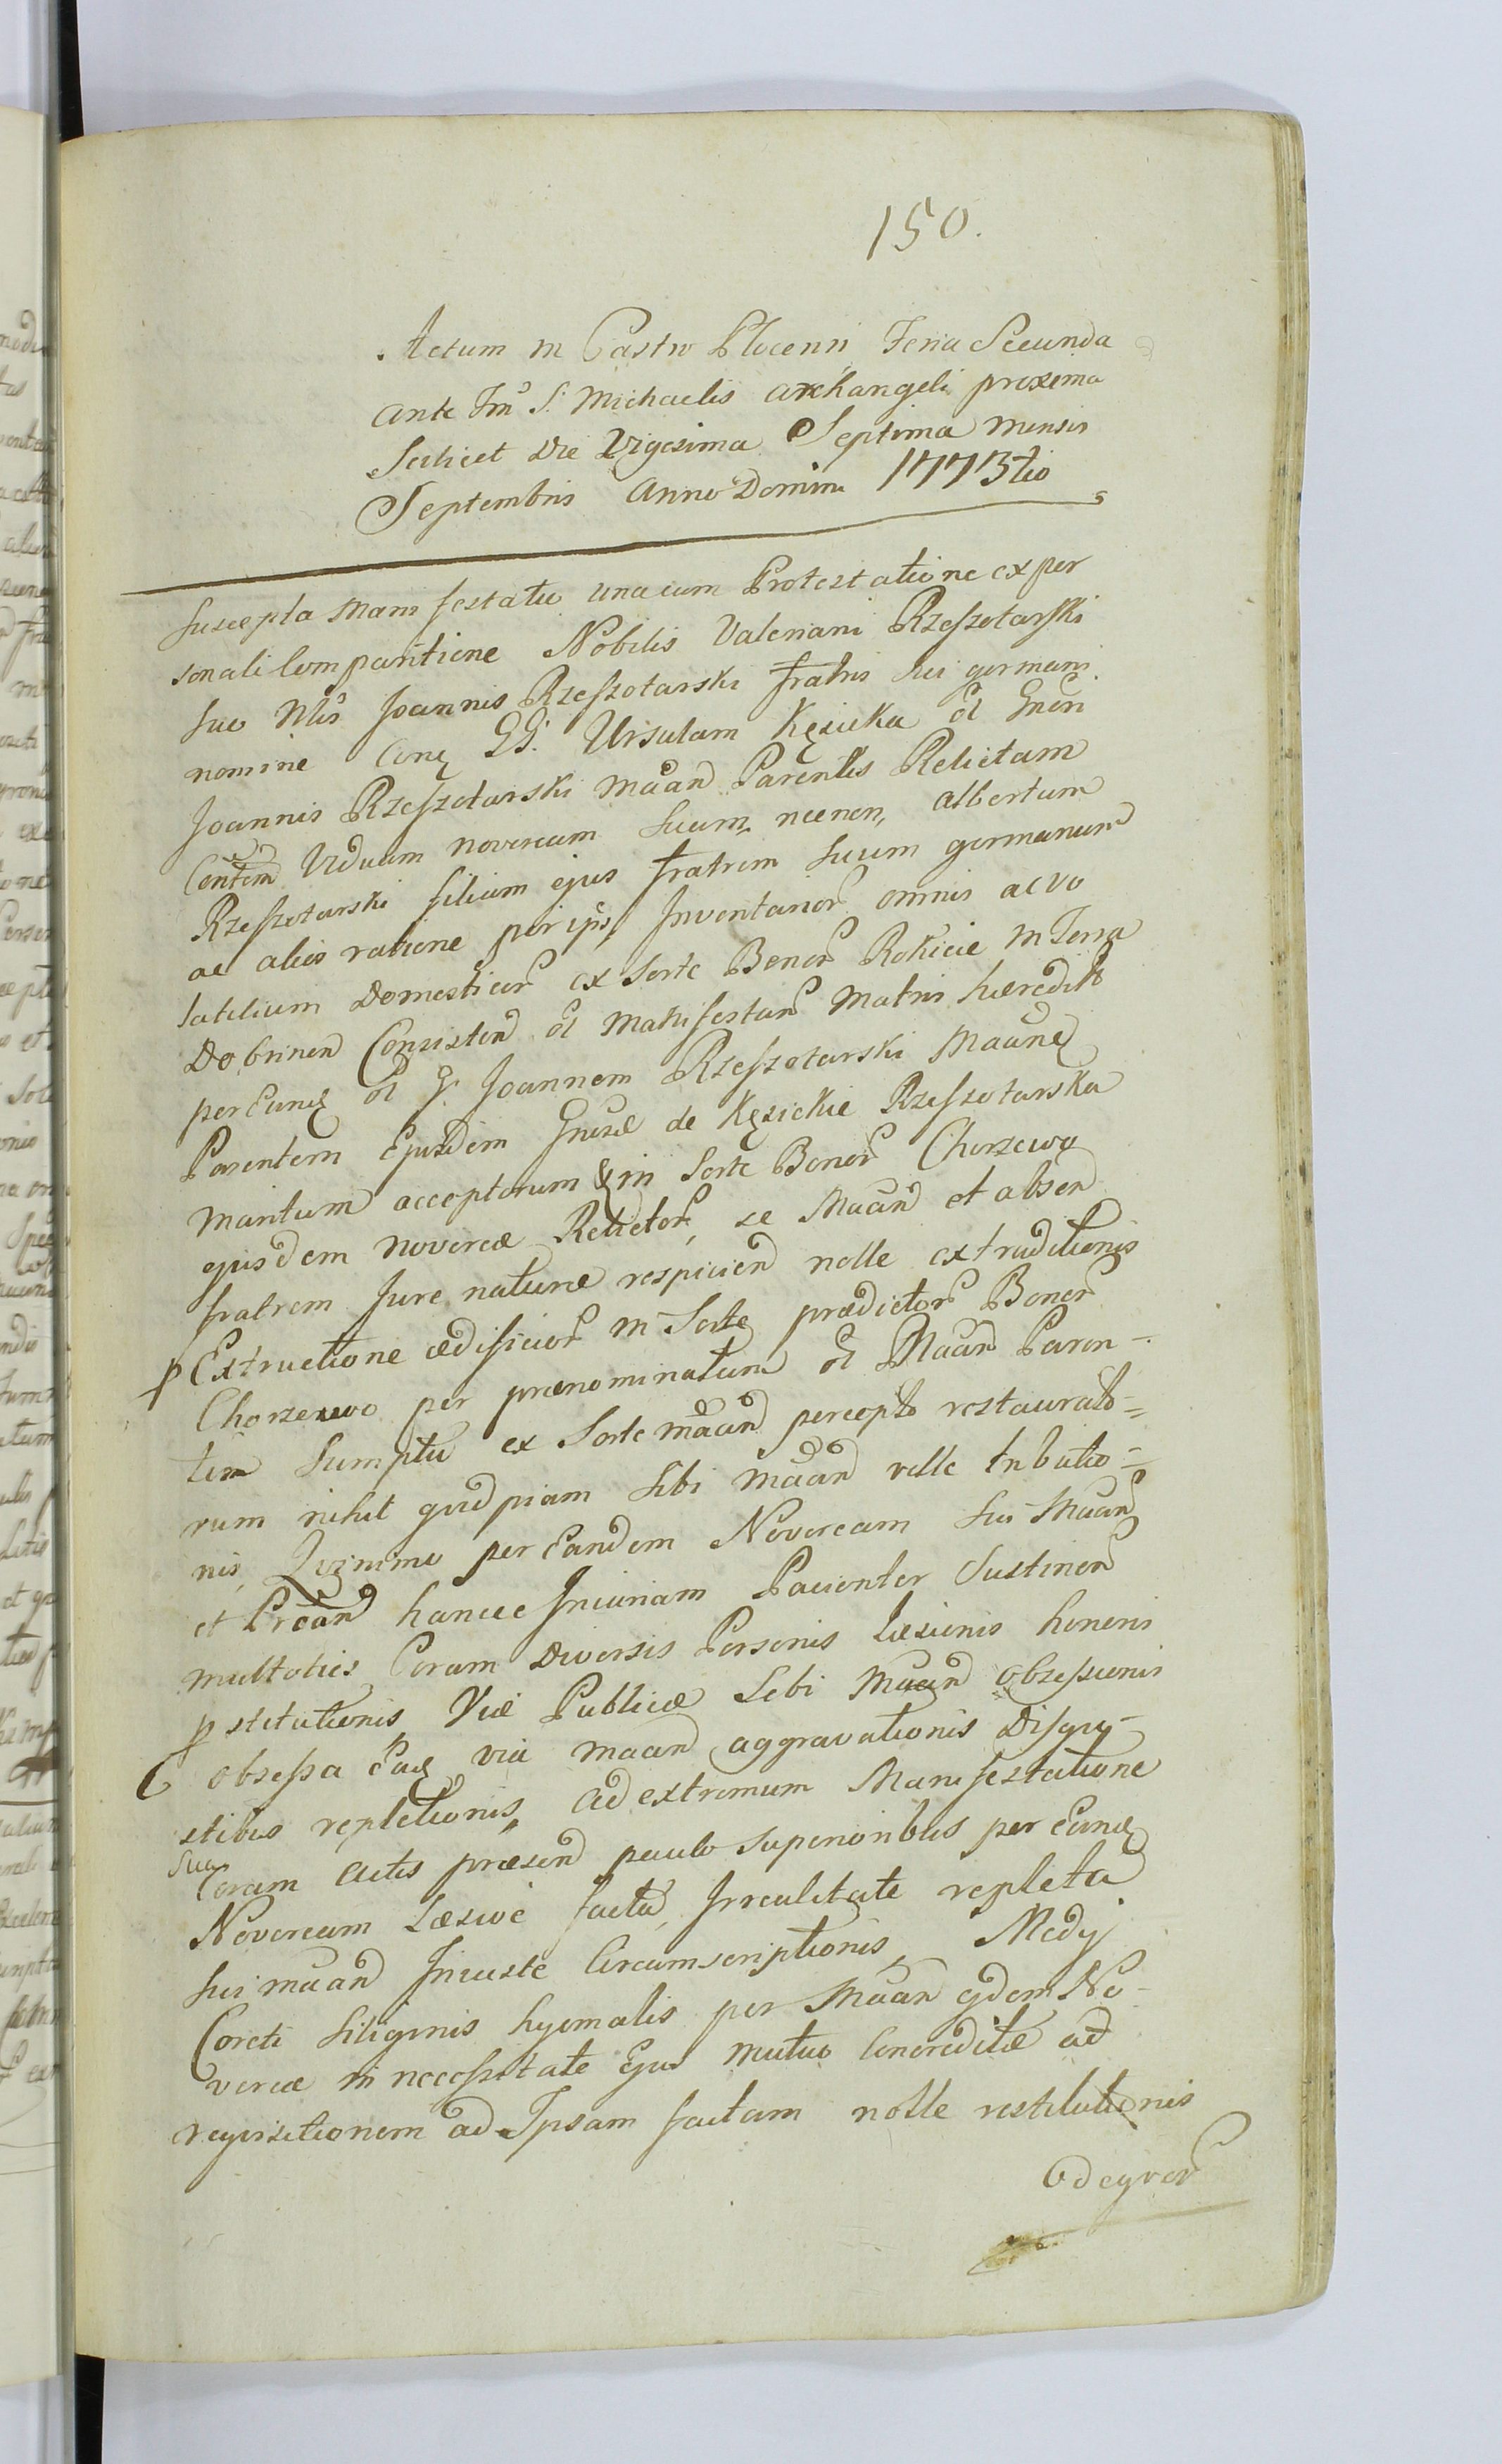 150.
Actum in Castro Plocensi Feria Secunda
ante Fm S. Michaelis archangeli proxima
Scilicet Die Vigesima Septima Mensis
Septembris Anno Domini 1773tio
Suscepta Manifestatio una cum Protestatione ex per
sonali Comparitione Nobilis Valeriani Rzeszotarski
suo Nlis Joannis Rzeszotarski fratris sui germani
nomine Conq GG. Ursulam Kęsicka ol Gnen
Joannis Rzeszotarski Maan Parentis Relictam
Viduam Novercam Suam necnon, Albertum
Rzeszotarski filium ejus fratrem Suum germanum
ac alios ratione per ips Inventarior omnis ac vo
latilium Domesticor ex Sorte Bonor Rokicie in Terra
Dobrinen Consisten ol Manifestan Matris hæredit
per Eunq ol G. Joannem Rzeszotarski Maanq
Parentem Ejusdem Gnosæ de Kęsickie Rzeszotarska
Maritum acceptorum & in Sorte Bonor Chorzewo
ejusdem Novercæ Relictor, se Maan et absen
fratrem Jure naturæ respicien nolle extraditionis
Extructione ædificior in Sorte prædictor Bonor
Chorzewo per prænominatum ol Maan Paren-
tem Sumptu ex Sorte maan percepto restaurato=
rum nihil quidpiam Sibi Maan velle tributio=
nis, Quinimo per Eandem Novercam Sui Maan
et Proan hancce Iniuriam Pacienter Sustinen
multoties Coram Diversis Personis Læsionis honoris
pstitutionis Viæ Publicæ Sibi Maan Obsessionis
obsessa Eaq via maan aggravationis Disgu-
stibus repletionis, ad extremum Manifestatione
sua
Coram Actis præsen paulo Superioribus per Eanq
Novercam Læsive facta, Irrealitate repleta
sui maan Iniuste Circumscriptionis, Medij
Coreti Siliginis hyemalis per Maan eidem No-
vercæ in necessitate Ejus Mutuo Concreditæ ad
requisitionem ad Ipsam factam nolle restitutionis